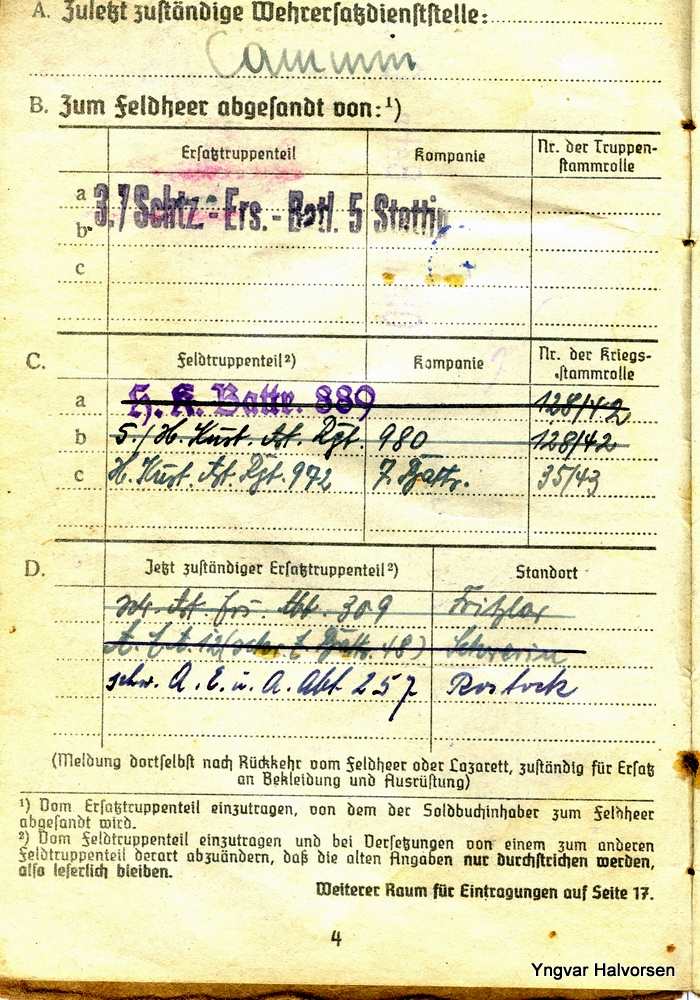 A. Zuletzt zuständige Wehrersatzdienststelle:
Cammin
B. Zum Feldheer abgesandt von:¹)
Ersatztruppenteil Kompanie Nr. der Truppen-stammrolle
a 3./Schtz.-Ers.-Batl. 5 Stettin
b
c
C. Feldtruppenteil²) Kompanie Nr. der Kriegs-stammrolle
a H. K. Battr. 889 128/42
b 5./H. Küst. Art. Rgt. 980 128/42
c H. Küst. Art. Rgt. 972 7. Battr. 35/43
D. Jetzt zuständiger Ersatztruppenteil²) Standort
Art. Ers. Abt. 309 Fritzlar
A. E. A. 12 48) Schwerin
schw. A. E. u. A. Abt 257 Rostock
(Meldung dortselbst nach Rückkehr vom Feldheer oder Lazarett, zuständig für Ersatz
an Bekleidung und Ausrüstung)
¹) Vom Ersatztruppenteil einzutragen, von dem der Soldbuchinhaber zum Feldheer
abgesandt wird.
²) Vom Feldtruppenteil einzutragen und bei Versetzungen von einem zum anderen
Feldtruppenteil derart abzuändern, daß die alten Angaben nur durchstrichen werden,
also leserlich bleiben.
Weiterer Raum für Eintragungen auf Seite 17.
4
Yngvar Halvorsen